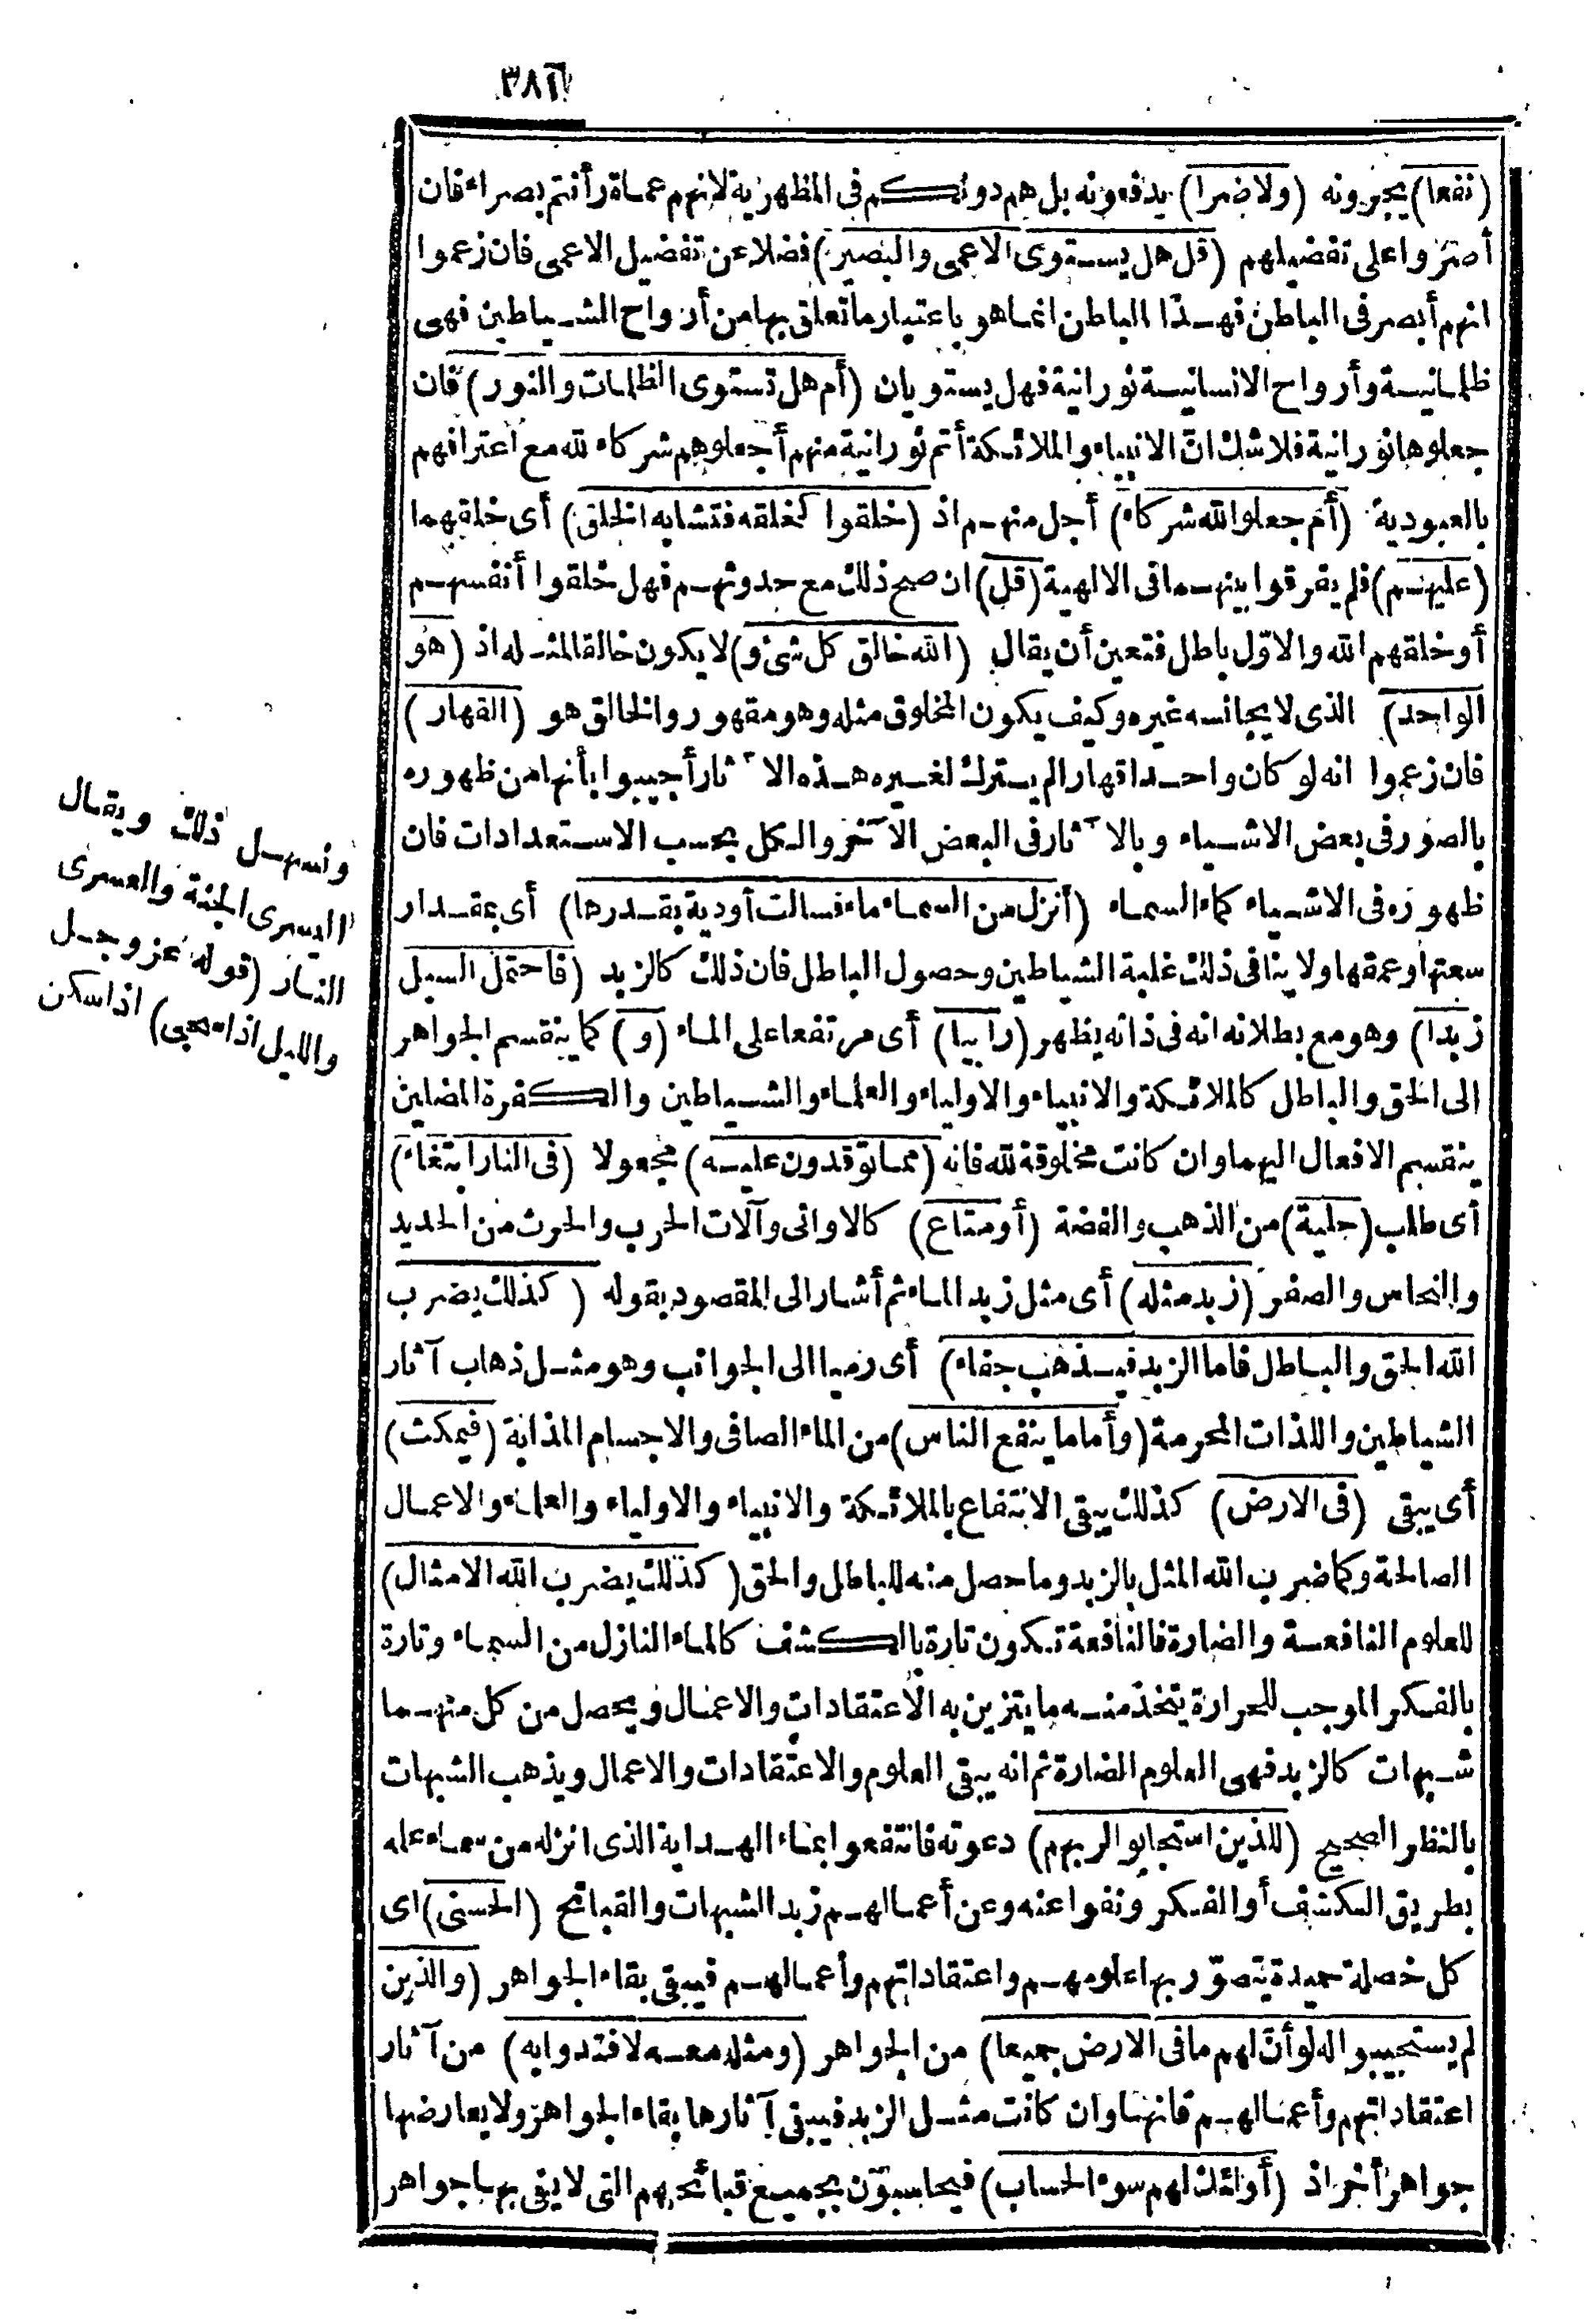 ٣٨٦
(نفعا) يجرونه (ولا ضرا) يدفعونه بل هم دونكم فى المظهرية لانهم عماة وأنتم بصراء فان
أصروا على تفضيلهم (قل هل يستوى الاعمى والبصير) فضلا عن تفضيل الاعمى فان زعموا
انهم أبصر فى الباطن فهذا الباطن انما هو باعتبار ما تعلق بها من أرواح الشياطين فهى
ظلمانية وأرواح الانسانية نورانية فهل يستويان (أم هل تستوى الظلمات والنور) فان
جعلوها نورانية فلا شك ان الانبياء والملائكة أتم نورانية منهم أجعلوهم شركاء لله مع اعترافهم
بالعبودية (أم جعلوا لله شركاء) أجل منهم اذ (خلقوا كخلقه فتشابه الخلق) أى خلقهما
(عليهم) فلم يفرقوا بينهما فى الالهية (قل) ان صح ذلك مع حدوثهم فهل خلقوا أنفسهم
أو خلقهم الله والاوّل باطل فتعين أن يقال (الله خالق كل شئ و) لا يكون خالقا لمثله اذ (هو
الواحد) الذى لا يجانسه غيره وكيف يكون المخلوق مثله وهو مقهور والخالق هو (القهار)
فان زعموا انه لو كان واحدا قهارا لم يترك لغيره هذه الآثار أجيبوا بأنها من ظهوره
بالصور فى بعض الاشياء وبالآثار فى البعض الآخر والكل بحسب الاستعدادات فان
ظهوره فى الاشياء كماء السماء (أنزل من السماء ماء فسالت أودية بقدرها) أى بمقدار
سعتها وعمقها ولا ينافى ذلك غلبة الشياطين وحصول الباطل فان ذلك كالزبد (فاحتمل السيل
زبدا) وهو مع بطلانه انه فى ذاته يظهر (رابيا) أى مرتفعا على الماء (و) كما ينقسم الجواهر
الى الحق والباطل كالملائكة والانبياء والاولياء والعلماء والشياطين والكفرة المضلين
ينقسم الافعال اليهما وان كانت مخلوقة لله فانه (مما توقدون عليه) مجعولا (فى النار ابتغاء)
أى طلب (حلية) من الذهب والفضة (أو متاع) كالاوانى وآلات الحرب والحرث من الحديد
والنحاس والصفر (زبد مثله) أى مثل زبد الماء ثم أشار الى المقصود بقوله (كذلك يضرب
الله الحق والباطل فاما الزبد فيذهب جفاء) أى رميا الى الجوانب وهو مثل ذهاب آثار
الشياطين واللذات المحرمة (وأما ما ينفع الناس) من الماء الصافى والاجسام المذابة (فيمكث)
أى يبقى (فى الارض) كذلك يبقى الانتفاع بالملائكة والانبياء والاولياء والعلماء والاعمال
الصالحة وكما ضرب الله المثل بالزبد وما حصل منه للباطل والحق (كذلك يضرب الله الامثال)
للعلوم النافعة والضارة فالنافعة تكون تارة بالكشف كالماء النازل من السماء وتارة
بالفكر الموجب للحرارة يتخذ منه ما يتزين به الاعتقادات والاعمال ويحصل من كل منهما
شبهات كالزبد فهى العلوم الضارة ثم انه يبقى العلوم والاعتقادات والاعمال ويذهب الشبهات
بالنظر الصحيح (للذين استجابوا لربهم) دعوته فانتفعوا بماء الهداية الذى انزله من سماء علمه
بطريق الكشف أو الفكر ونفوا عنه وعن أعمالهم زبد الشبهات والقبائح (الحسنى) اى
كل خصلة حميدة يتصوّر بها علومهم واعتقاداتهم وأعمالهم فيبقى بقاء الجواهر (والذين
لم يستجيبوا له لو أنّ لهم ما فى الارض جميعا) من الجواهر (ومثله معه لافتدوا به) من آثار
اعتقاداتهم وأعمالهم فانها وان كانت مثل الزبد فيبقى آثارها بقاء الجواهر ولا يعارضها
جواهر أخر اذ (أولئك لهم سوء الحساب) فيحاسبون بجميع قبائحهم التى لا يفى بها جواهر
ونسهل ذلك ويقال
اليسرى الجنة والعسرى
النار (قوله عز وجل
والليل اذا سجى) اذا سكن